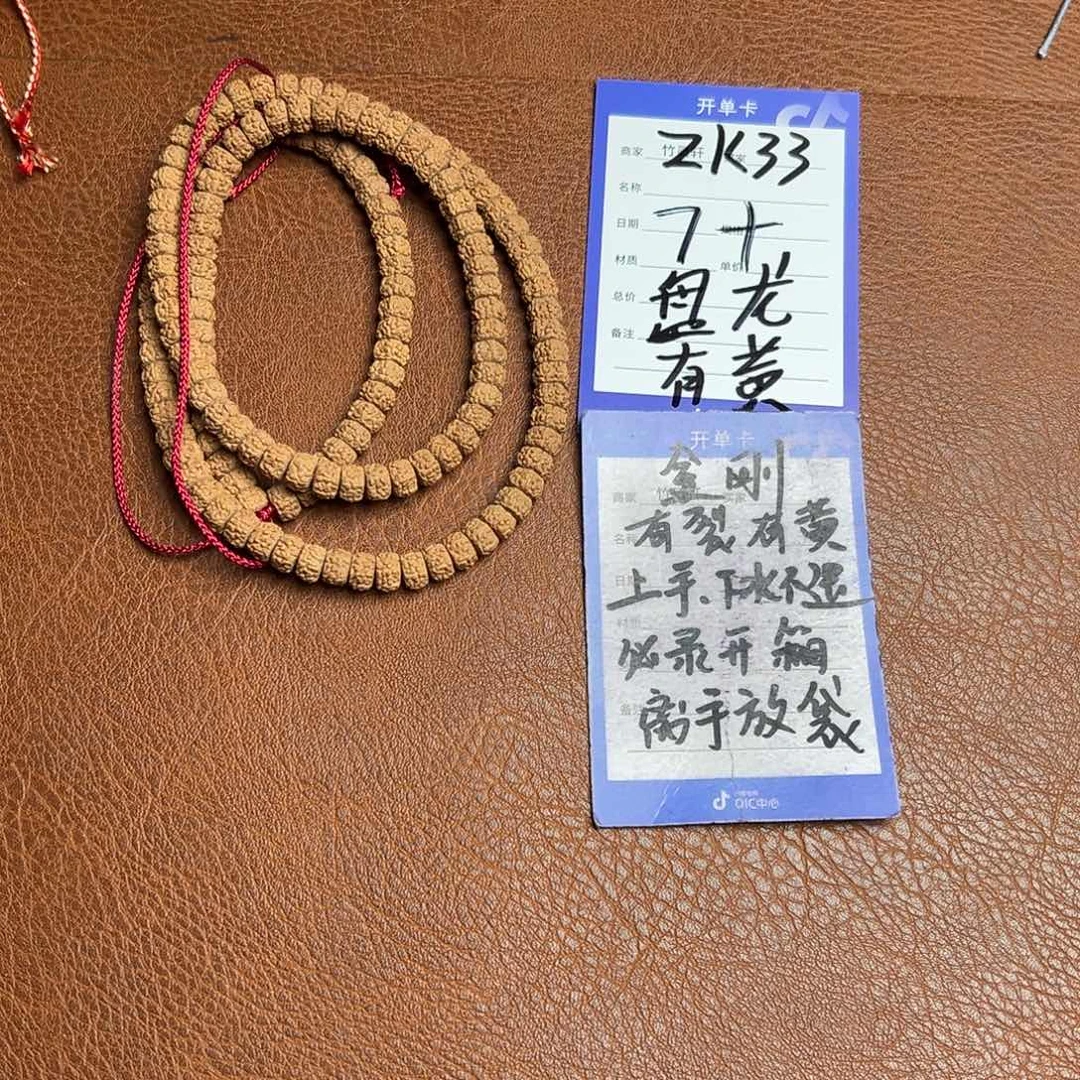 开单卡
ZK33
商家 竹 轩
名称
日期
7十
材质 单价
盘龙
总价
备注
有黄
开单卡
金刚
商家
有裂有黄
上手、下水不退
必录开箱
备注
离手放袋
QIC中心